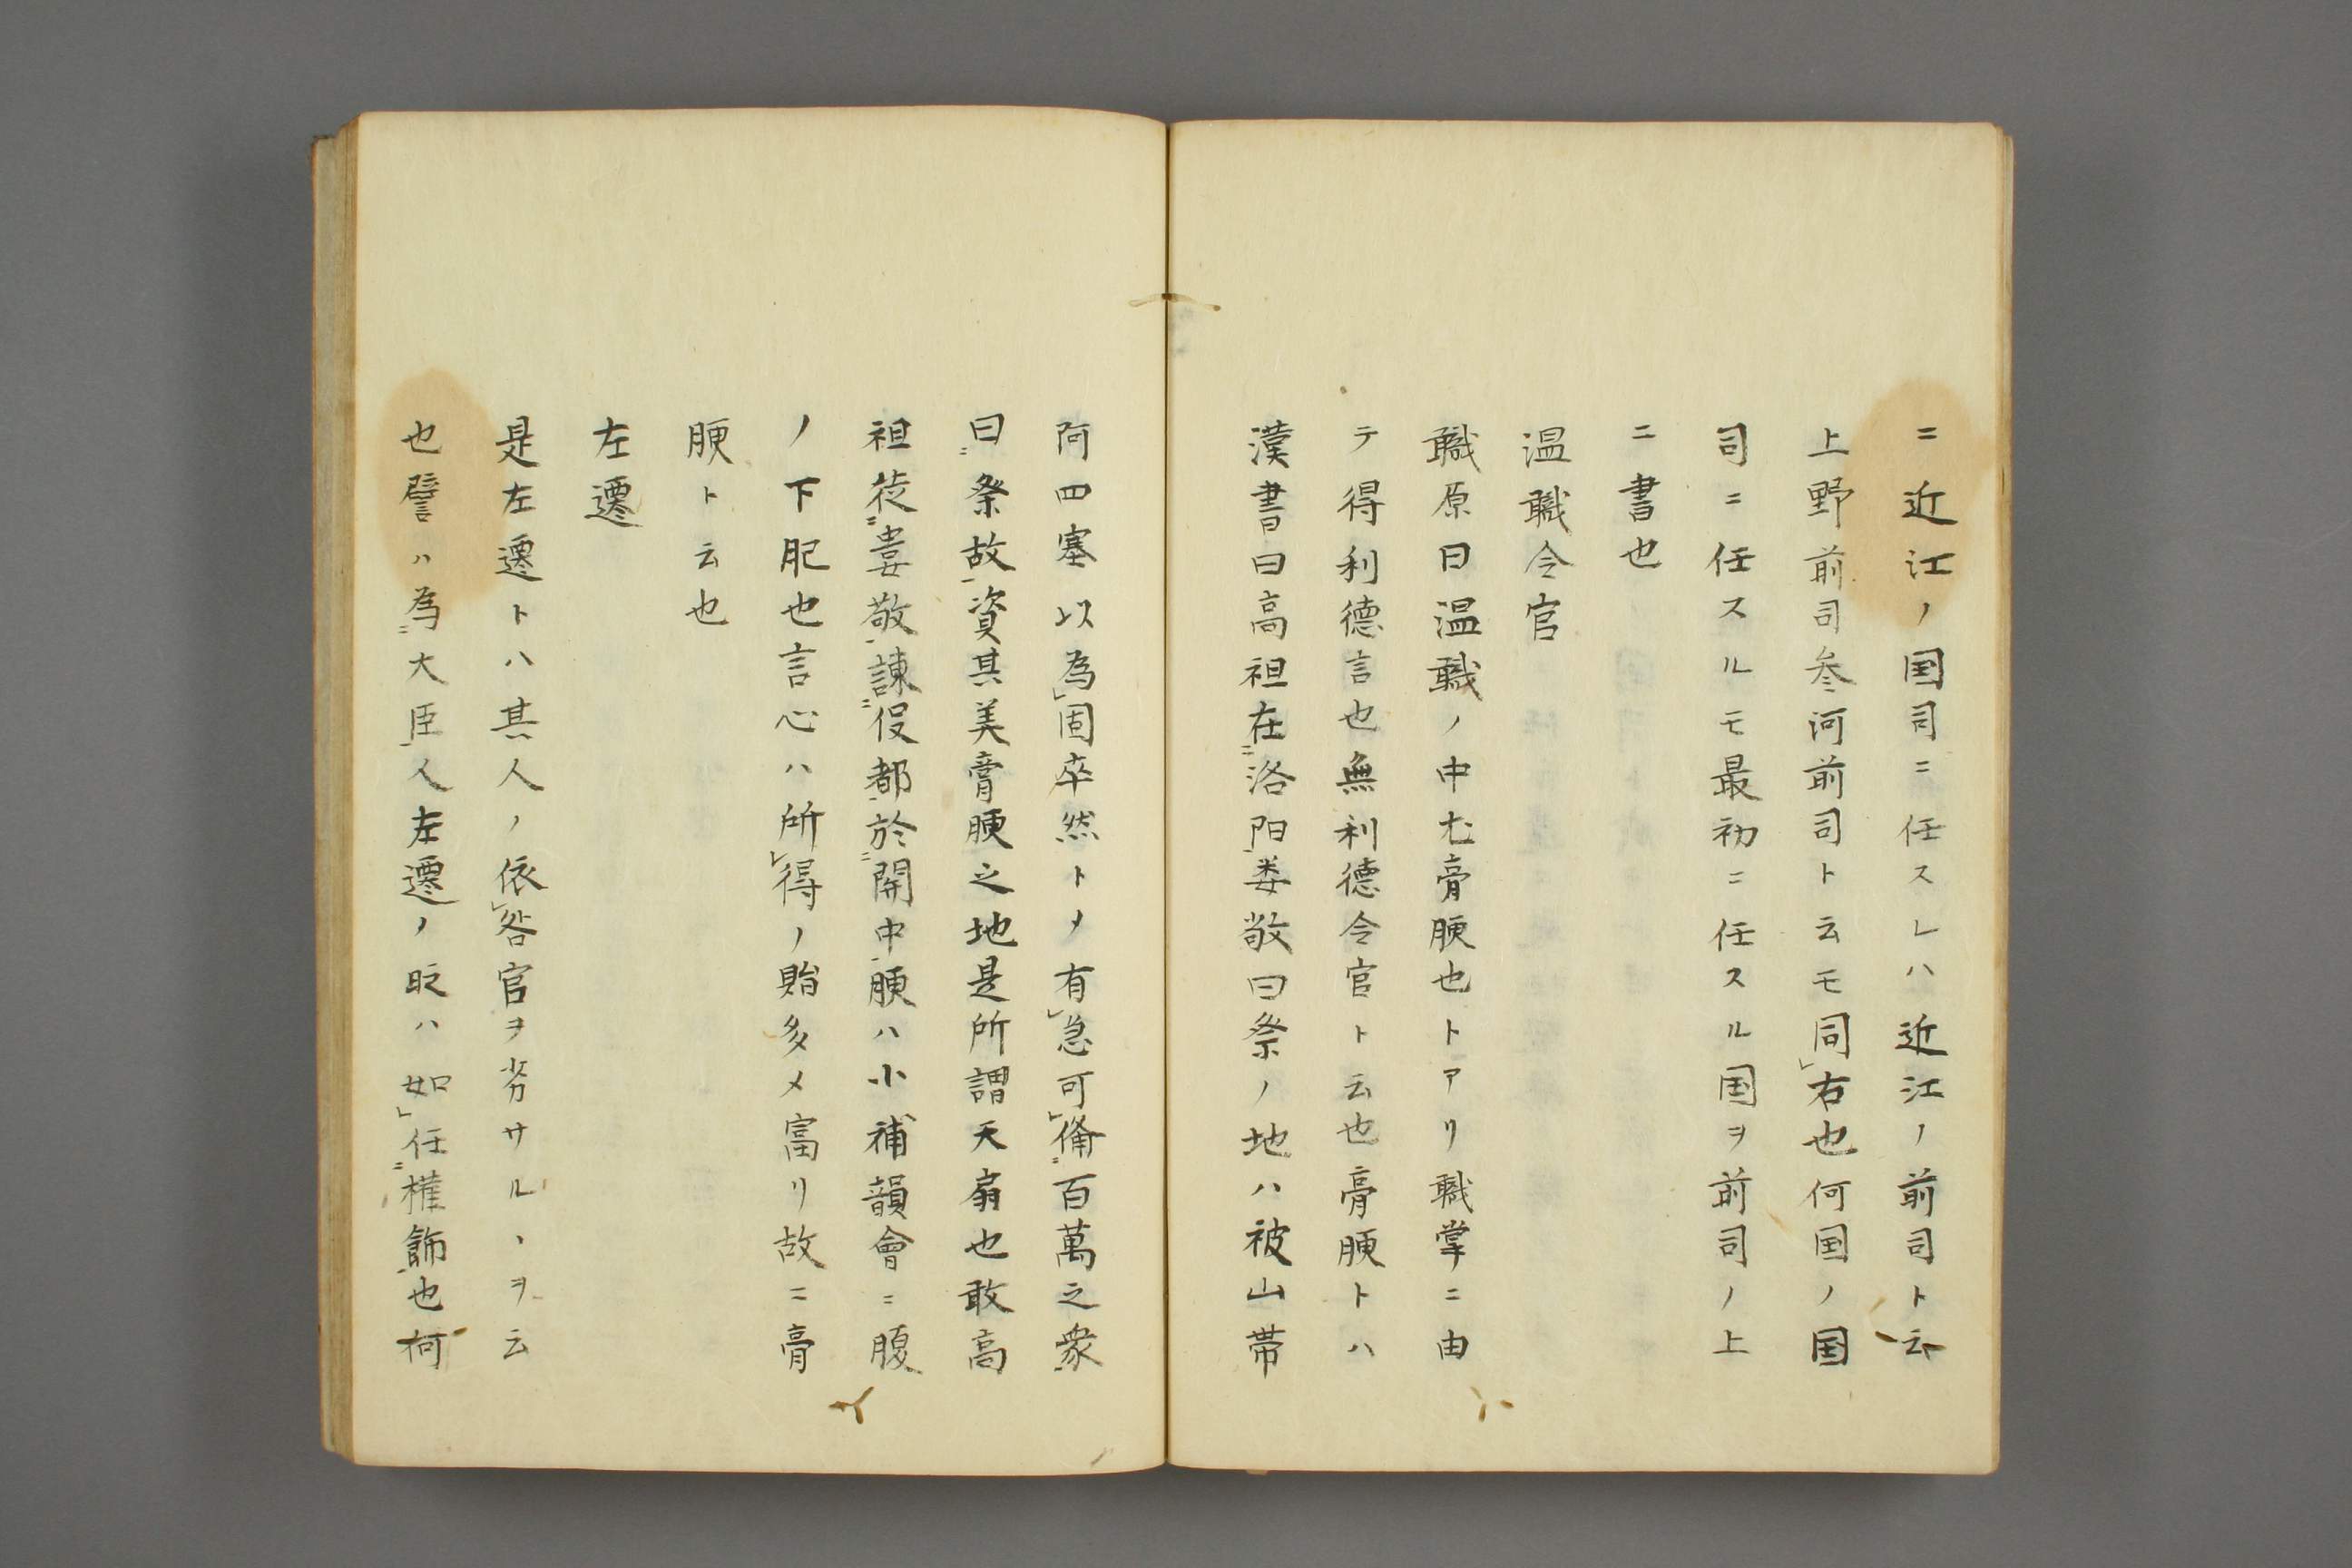 ニ近江ノ国司ニ任スレハ近江ノ前司ト云
上野前司参河前司ト云モ同右也何国ノ国
司ニ任スルモ最初ニ任スル国ヲ前司ノ上
ニ書也
温職令官
職原曰温職ノ中尤膏腴也トアリ職掌ニ由
テ得利徳言也無利徳令官ト云也膏腴トハ
漢書曰高祖在ニ洛阳娄敬曰祭ノ地ハ被山帯
阿四塞以為レ固卒然トメ有レ急可レ俻ニ百萬之衆
曰ニ祭故資其美膏腴之地是所謂天扇也敢高
祖従ニ娄敬諌ニ伇都於ニ関中腴ハ小補韻會ニ腹
ノ下肥也言心ハ所レ得ノ貽多メ富リ故ニ膏
腴ト云也
左遷
是左遷トハ其人ノ依レ咎官ヲ劣サルヽヲ云
也譬ハ為ニ大臣人左遷ノ时ハ如レ任ニ権飾也何